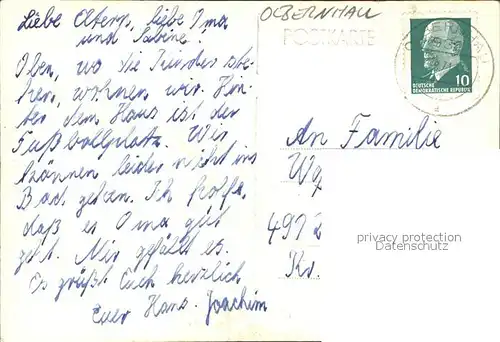 Liebe Eltern, liebe Oma
und Sabine!
Oben, wo die Kinder ste-
hen, wohnen wir. Hin-
ter dem Haus ist der
Fußballplatz. Wir
können leider nicht ins
Bad gehen. Ich hoffe,
daß es Oma gut
geht. Mir gefällt es.
Es grüßt Euch herzlich
Euer Hans-Joachim
OLBERNHAU
POSTKARTE
10
DEUTSCHE
DEMOKRATISCHE REPUBLIK
An Familie
Kr.
privacy protection
Datenschutz